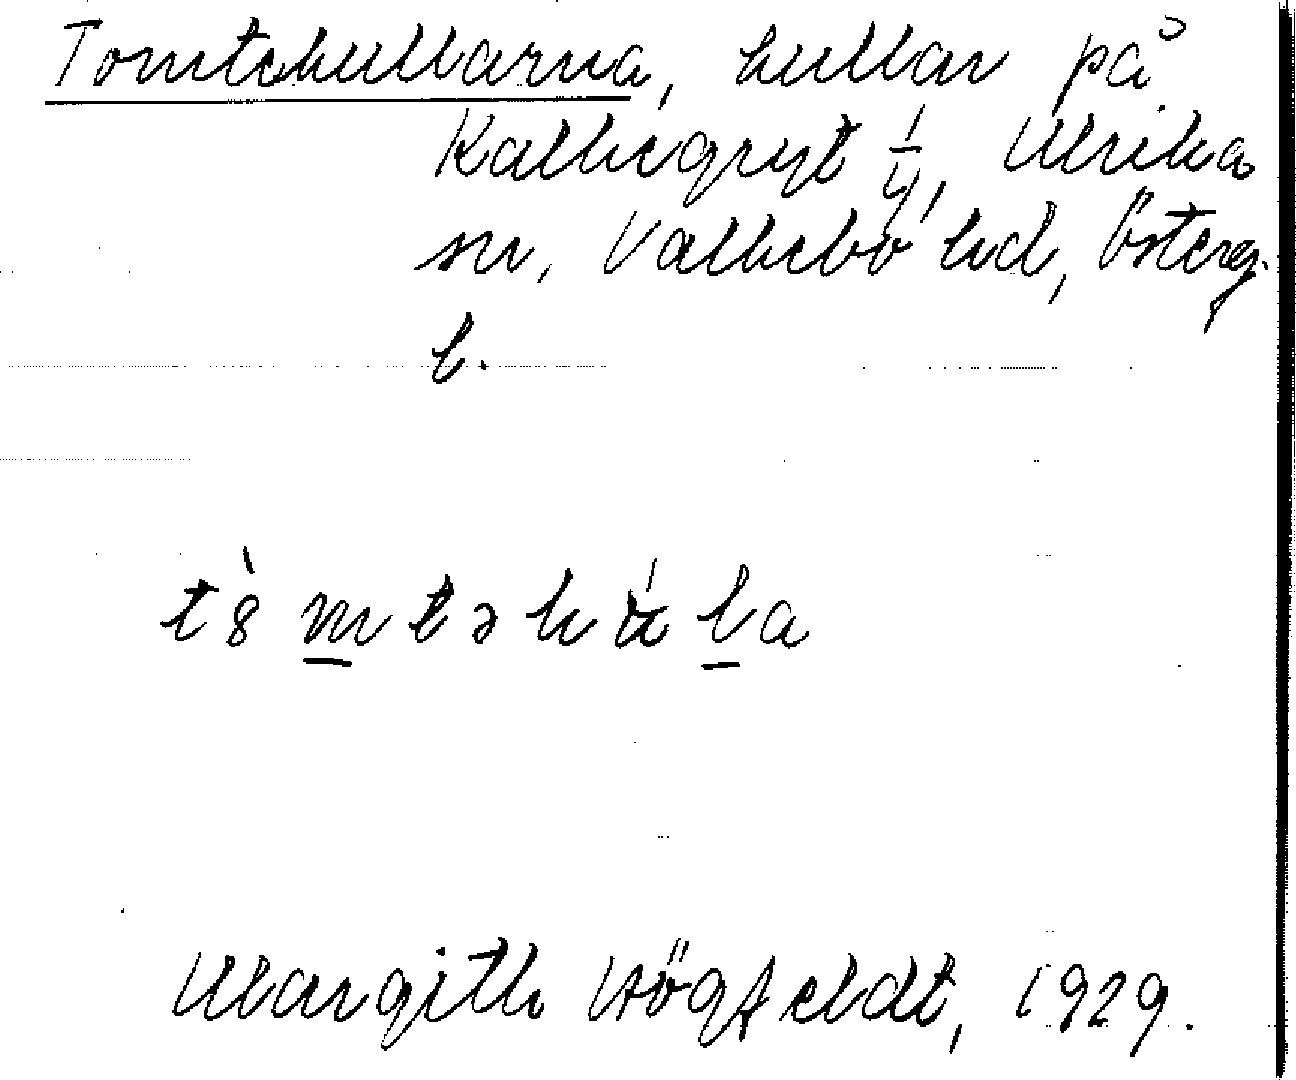 Tomtekullarna, kullar på
Kalkegryt 1/4, Ulrika
sn, Valkebo hd, Österg.
l.
tò̀mtəkúla
Margith Högfeldt, 1929.